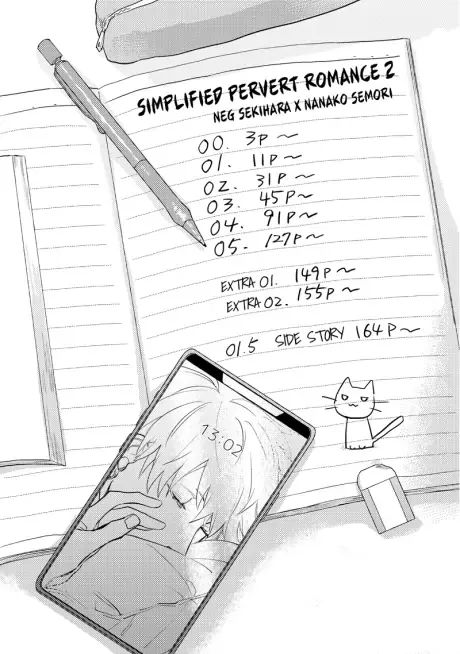 SIMPLIFIED PERVERT ROMANCE 2
NEG SEKIHARA X NANAKO SEMORI
00. 3P~
01. 11P~
02. 31P~
03. 45P~
04. 91P~
05. 127P~
EXTRA 01. 149P~
EXTRA 02. 155P~
01.5 SIDE STORY 164P~
13:02